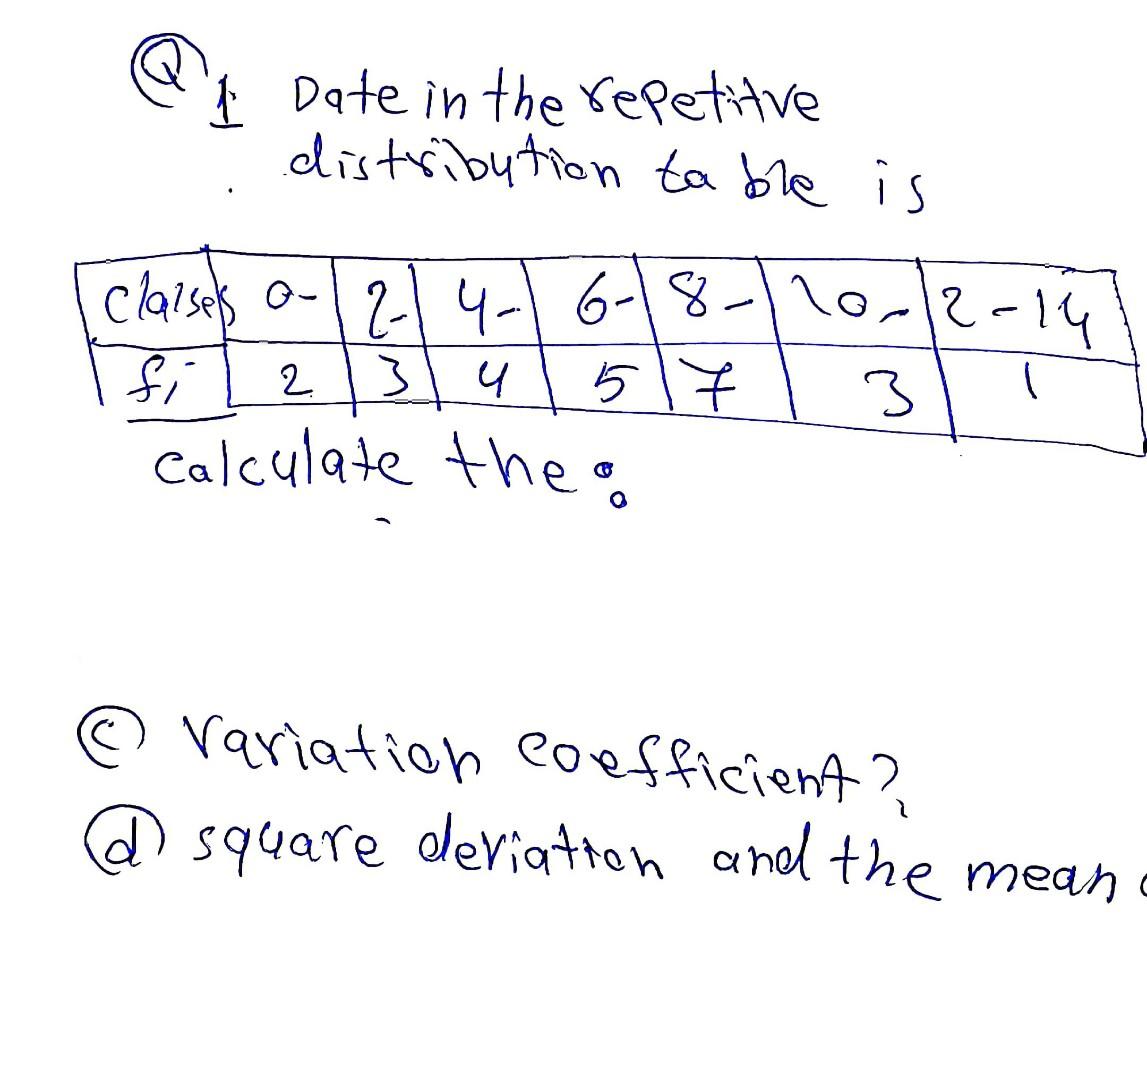 Q1 Date in the repetitve
distribution table is
Classes 0- 2- 4- 6- 8- 10- 12-14
fi 2 3 4 5 7 3 1
Calculate the:
c Variation coefficient?
d square deviation and the mean